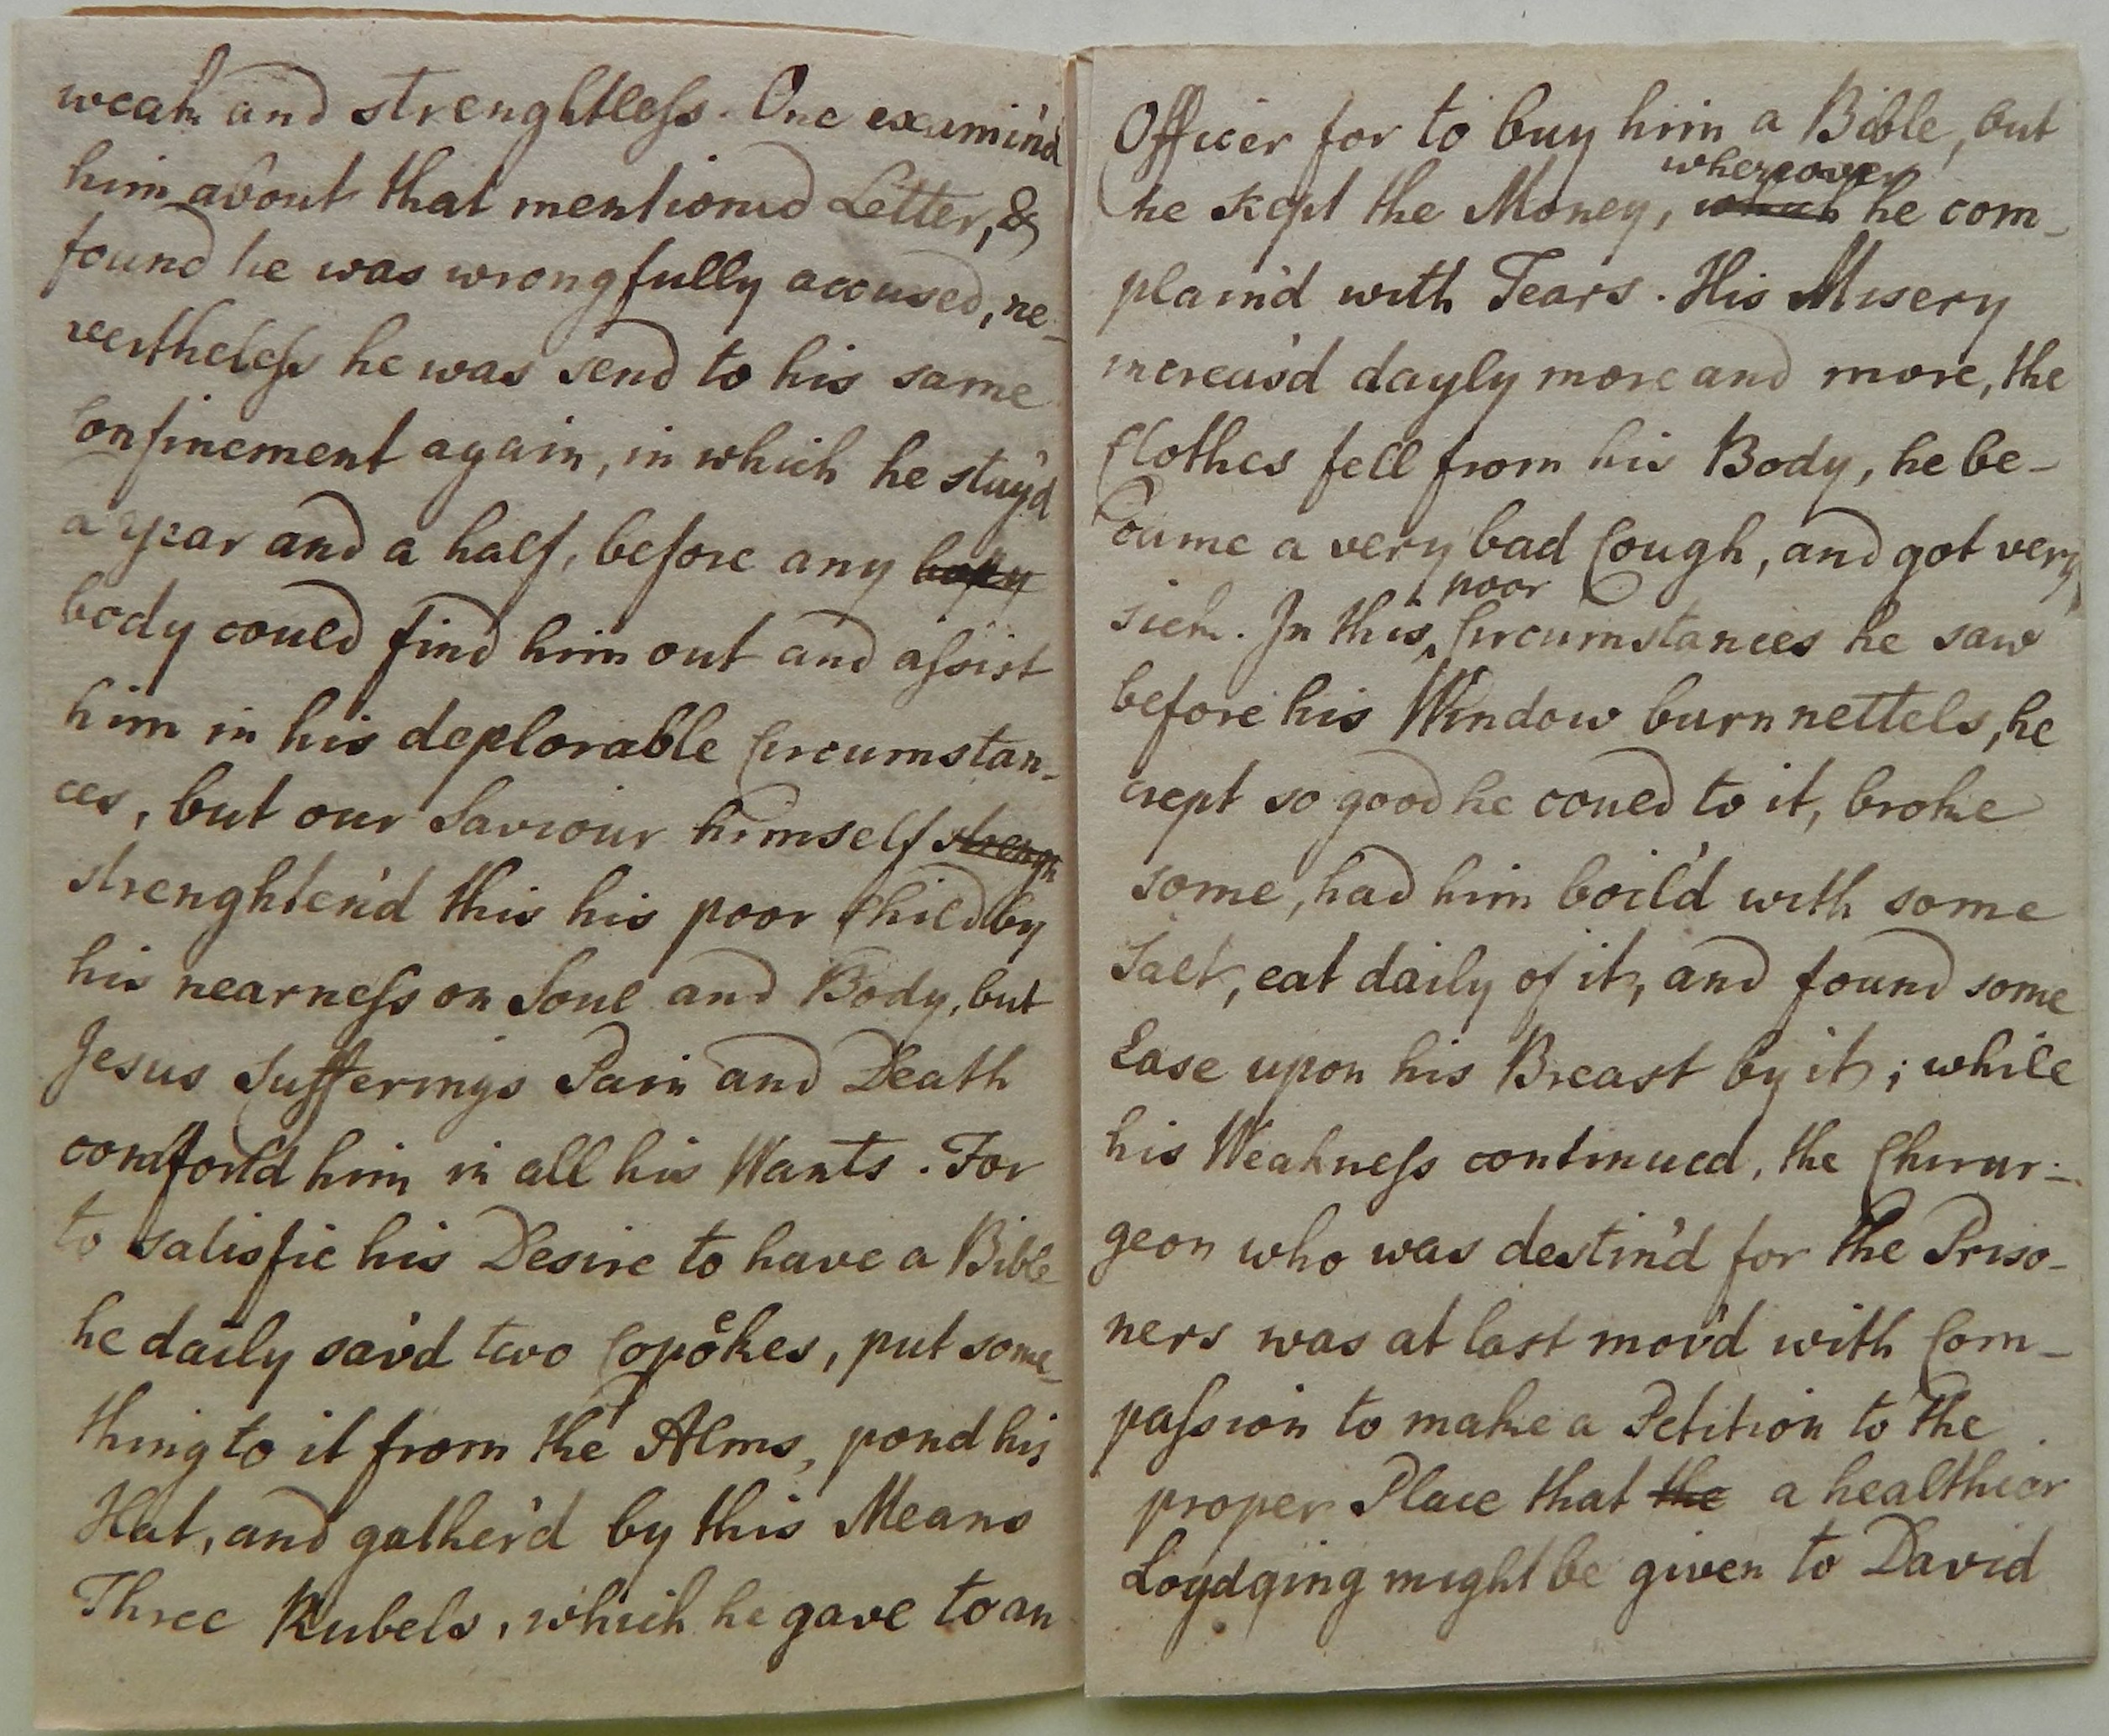 weak and strenghtless. One examin'd
him about that mentioned Letter, &
found he was wrongfully accused, ne-
vertheless he was send to his same
Confinement again, in which he stay'd
a year and a half, before any
body could find him out and assist
him in his deplorable Circumstan-
ces, but our Saviour himself strengh
strenghten'd this his poor Child by
his nearness on Soul and Body, but
Jesus Sufferings Pain and Death
comfort'd him in all his Wants. For
to satisfie his Desire to have a Bible
he daily sav'd two Copekes, put some-
thing to it from the Alms, pond his
Hat, and gather'd by this Means
Three Rubels, which he gave to an
Officer for to buy him a Bible, but
whereover
he kept the Money, which he com-
plain'd with Tears. His Misery
increas'd dayly more and more, the
Clothes fell from his Body, he be-
Came a very bad Cough, and got very
poor
sick. In this Circumstances he saw
before his Window burn nettels, he
crept so good he could to it, broke
some, had him boil'd with some
Salt, eat daily of it, and found some
Ease upon his Breast by it; while
his Weakness continued, the Chirur-
geon who was destin'd for the Priso-
ners was at last mov'd with Com-
passion to make a Petition to the
proper Place that the a healthier
Logdging might be given to David